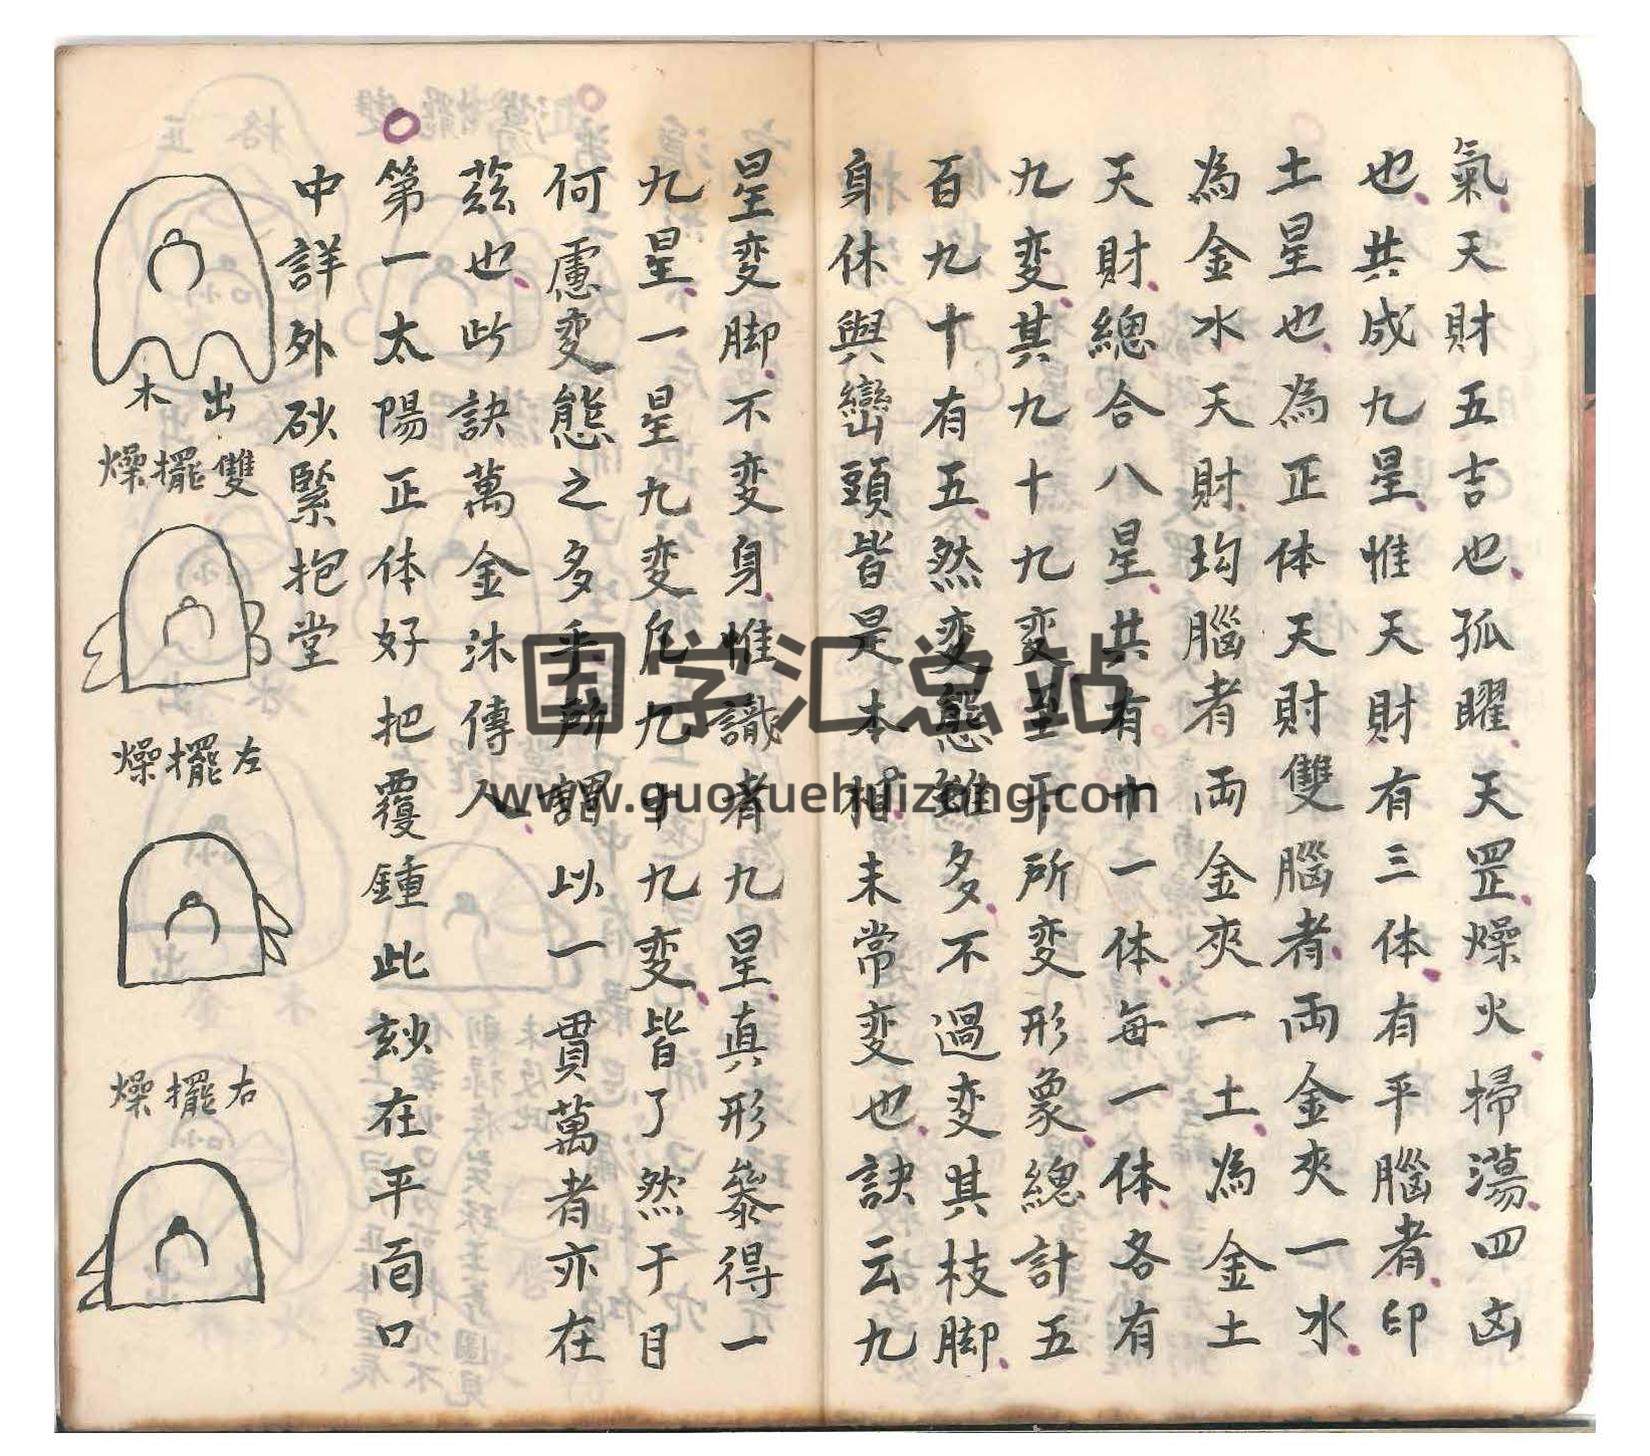 氣天財五吉也孤曜天罡燥火掃蕩四凶
也共成九星惟天財有三体有平腦者印
土星也為正体天財雙腦者兩金夾一水
為金水天財均腦者兩金夾一土為金土
天財總合八星共有十一体每一体各有
九变其九十九变至于所变形象總計五
百九十有五然变態雖多不過变其枝脚
身体與巒頭皆是本相未常变也訣云九
星变脚不变身惟識者九星真形參得一
九星一星九变凡九十九变皆了然于目
何慮变態之多乎所謂以一貫萬者亦在
茲也此訣萬金沐傳人
第一太陽正体好把覆鍾此玅在平面口
中詳外砂緊抱堂
出木
雙擺燥
左擺燥
右擺燥
国学汇总站
www.guoxuehuizong.com